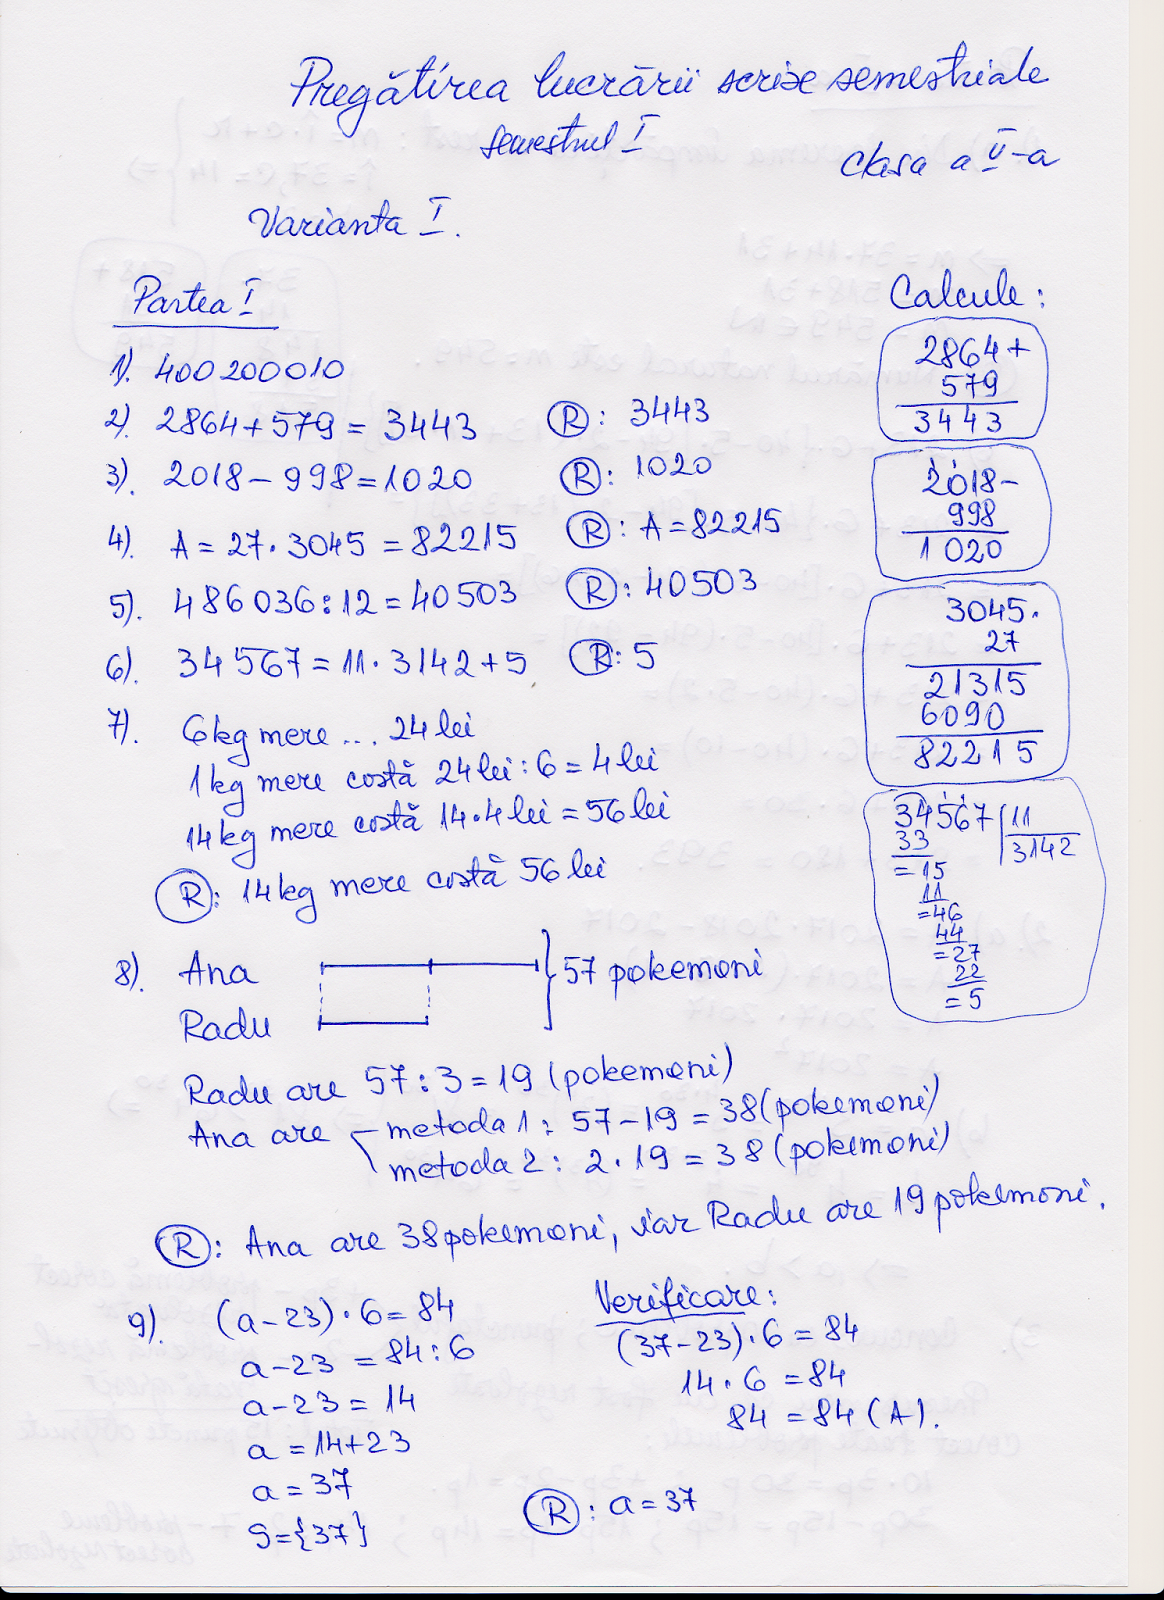 Pregătirea lucrării scrise semestriale
semestrul I
clasa a V-a
Varianta I.
Partea I
1). 400200010
2). 2864+579 = 3443 R: 3443
3). 2018-998=1020 R: 1020
4). A = 27·3045 = 82215 R: A=82215
5). 486036:12=40503 R: 40503
6). 34567=11·3142+5 R: 5
7). 6kg mere ... 24 lei
1kg mere costă 24 lei:6=4 lei
14kg mere costă 14·4 lei=56 lei
R: 14kg mere costă 56 lei
Calcule:
2864+
579
3443
2018-
998
1020
3045·
27
21315
6090
82215
34567 11
33 3142
=15
11
=46
44
=27
22
=5
8). Ana } 57 pokemoni
Radu
Radu are 57:3=19 (pokemoni)
Ana are metoda 1: 57-19=38(pokemoni)
metoda 2: 2·19=38(pokemoni)
R: Ana are 38 pokemoni, iar Radu are 19 pokemoni.
9). (a-23)·6=84
a-23 = 84:6
a-23 = 14
a = 14+23
a = 37
S={37}
Verificare:
(37-23)·6=84
14·6 = 84
84 = 84 (A).
R: a=37